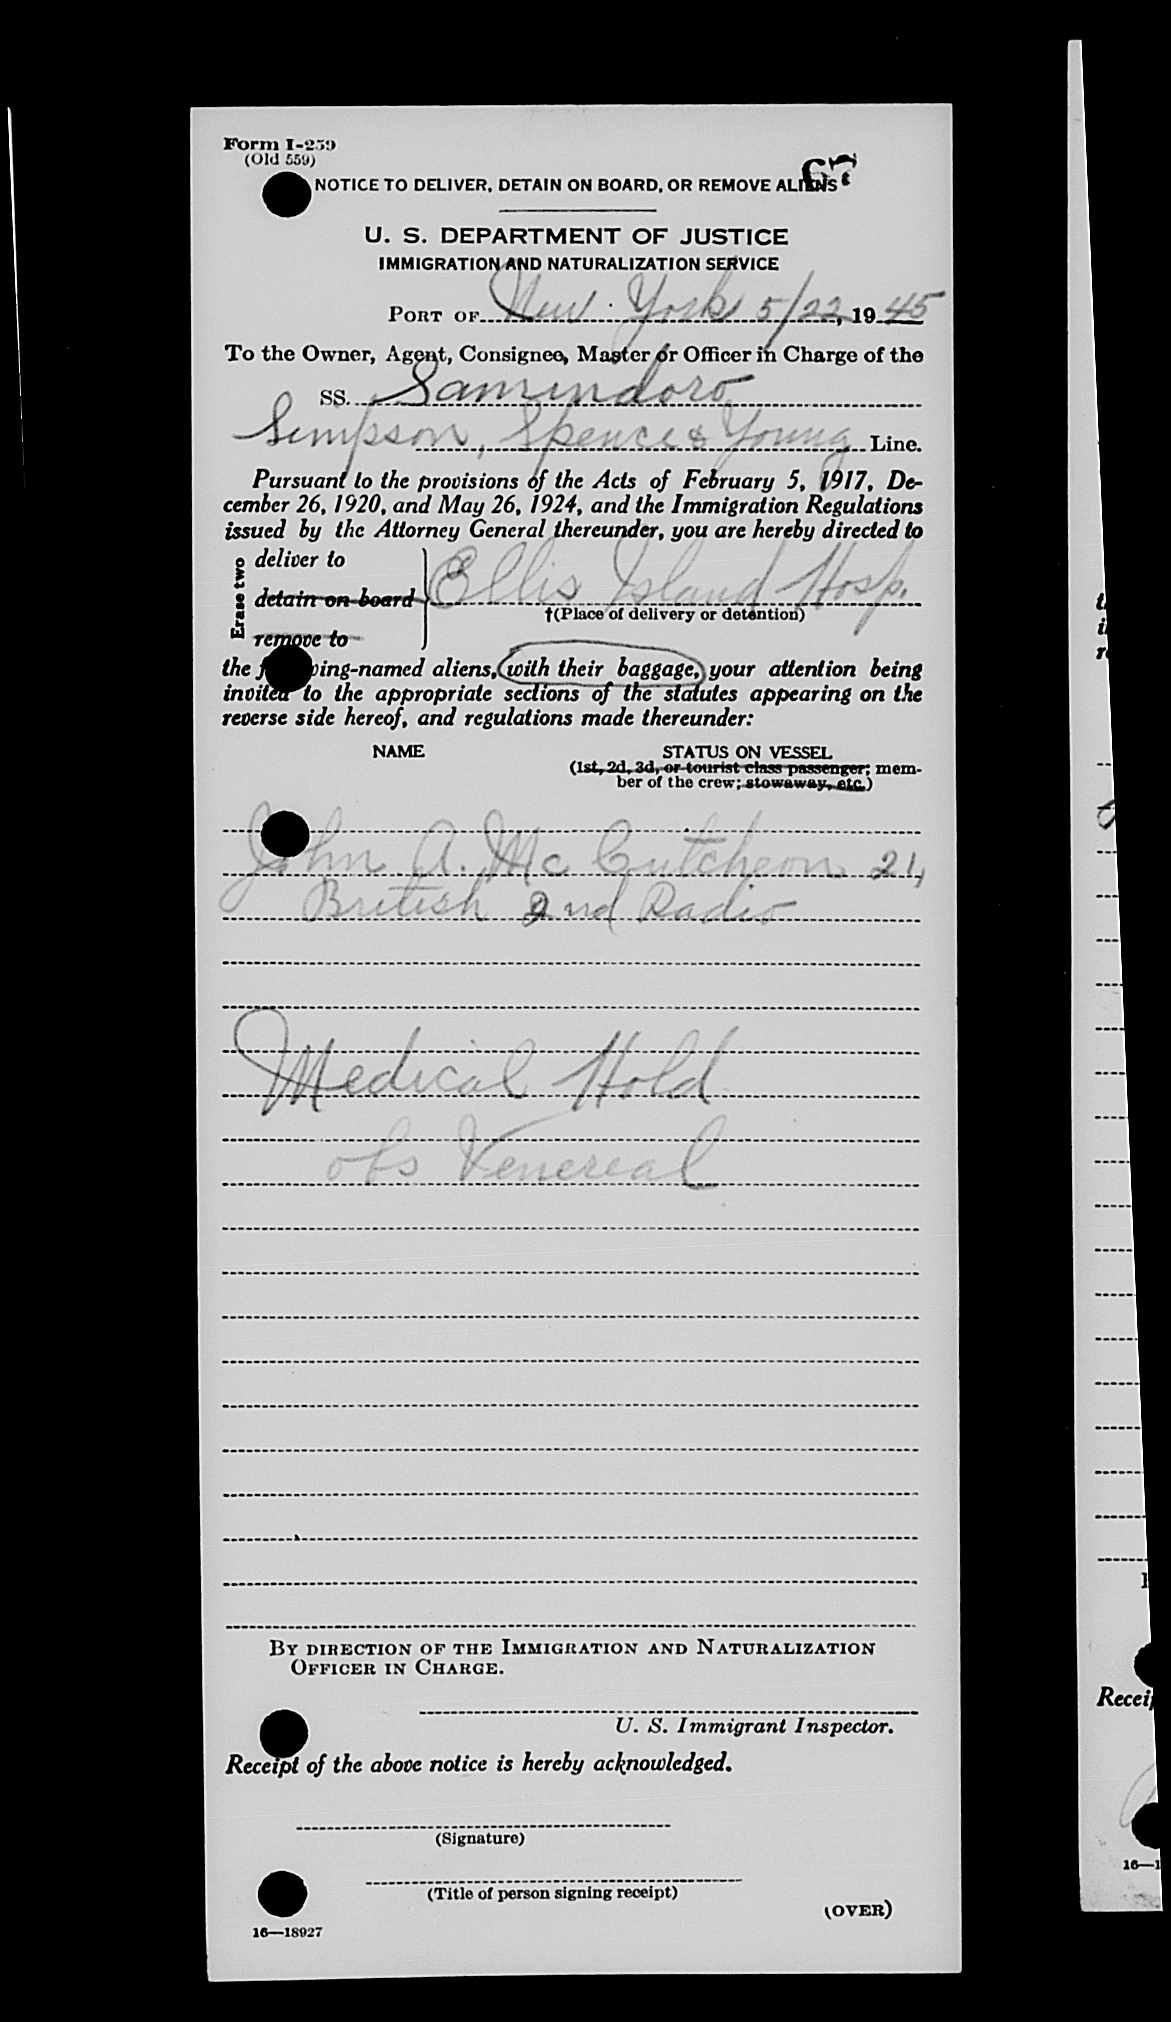 Form I-259
(Old 559)
67
NOTICE TO DELIVER, DETAIN ON BOARD, OR REMOVE ALIENS
U. S. DEPARTMENT OF JUSTICE
IMMIGRATION AND NATURALIZATION SERVICE
PORT OF New York 5/22, 1945
To the Owner, Agent, Consignee, Master or Officer in Charge of the
SS. Samindoro
Simpson, Spence & Young Line.
Pursuant to the provisions of the Acts of February 5, 1917, De-
cember 26, 1920, and May 26, 1924, and the Immigration Regulations
issued by the Attorney General thereunder, you are hereby directed to
Erase two
deliver to
detain on board
remove to
Ellis Island Hosp.
†(Place of delivery or detention)
the following-named aliens, with their baggage, your attention being
invited to the appropriate sections of the statutes appearing on the
reverse side hereof, and regulations made thereunder:
NAME STATUS ON VESSEL
(1st, 2d, 3d, or tourist class passenger; mem-
ber of the crew; stowaway, etc.)
John A. McCutcheon 24,
British 2nd Radio
Medical Hold
obs Venereal
BY DIRECTION OF THE IMMIGRATION AND NATURALIZATION
OFFICER IN CHARGE.
U. S. Immigrant Inspector.
Receipt of the above notice is hereby acknowledged.
(Signature)
(Title of person signing receipt)
(OVER)
16—18927
Recei
16—1